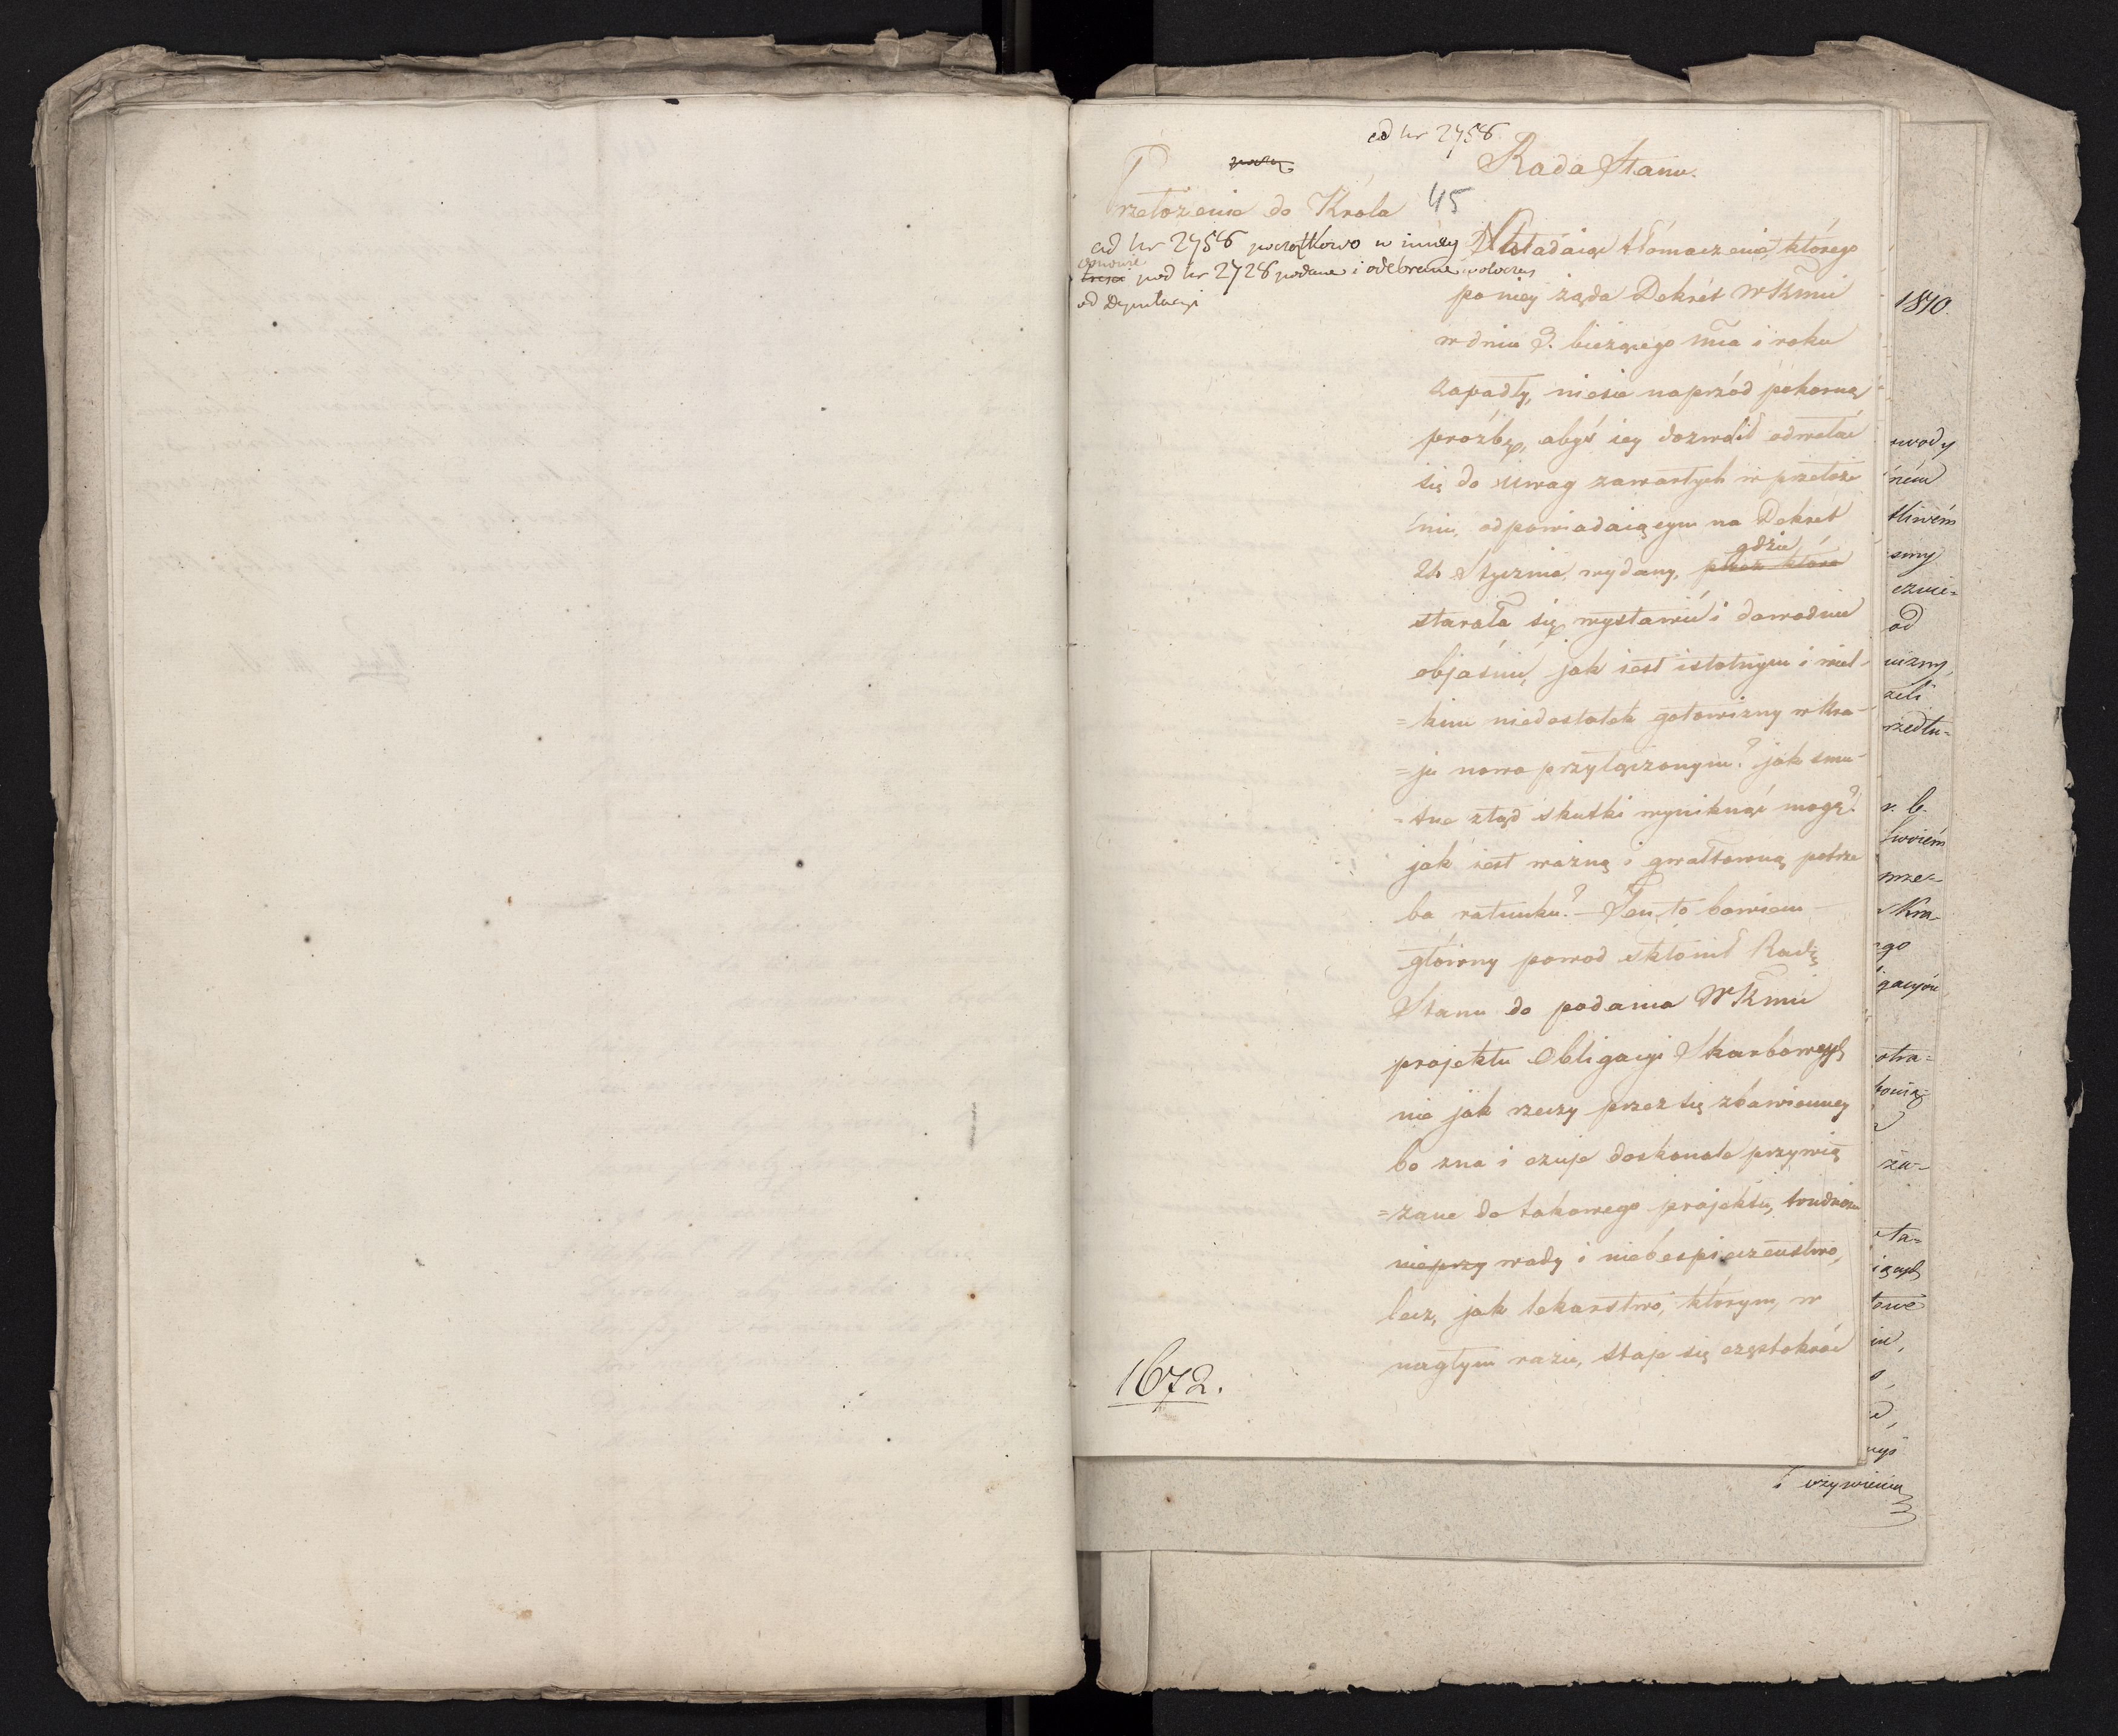 ad nr 2756
Rada Stanu.
Przełożenie do Króla 45
ad nr 2756 początkowo w inney
osnowie
pod nr 2726 podane i odebrane
od Deputacyi
Składaiąc tłómaczenie, którego
po niey żąda Dekrét WKMci
w dniu 3. bieżącego mca i roku
zapadły, niesie naprzód pokorną
proźbę, abyś iey dozwolił odwołać
się do uwag zawartych w przełoże
niu, odpowiadaiącym na Dekret
24 Stycznia wydany, przez które
gdzie
starała się wystawić i dowodnie
objaśnić, jak iest istotnym i wiel-
=kim niedostatek gotowizny w Kra-
=ju nowo przyłączonym? jak smu-
=tne ztąd skutki wyniknąć mogą?
jak iest ważną i gwałtowną potrze
ba ratunku? - Ten to bowiem -
główny powod skłonił Radę
Stanu do podania WKMci
projektu Obligacyi Skarbowych
nie jak rzeczy przez się zbawienney
bo zna i czuje doskonale przywią
=zane do takowego projektu, trudności
nieprzy wady i niebespieczeństwo,
lecz, jak lekarstwo, którym, w
nagłym razie, staje się częstokroć
1672.
1810.
wody
tliwém
od
rzedłu-
r. b.
Kra-
go
gacyów
otra=
za-
sta=
iących
i ożywienia